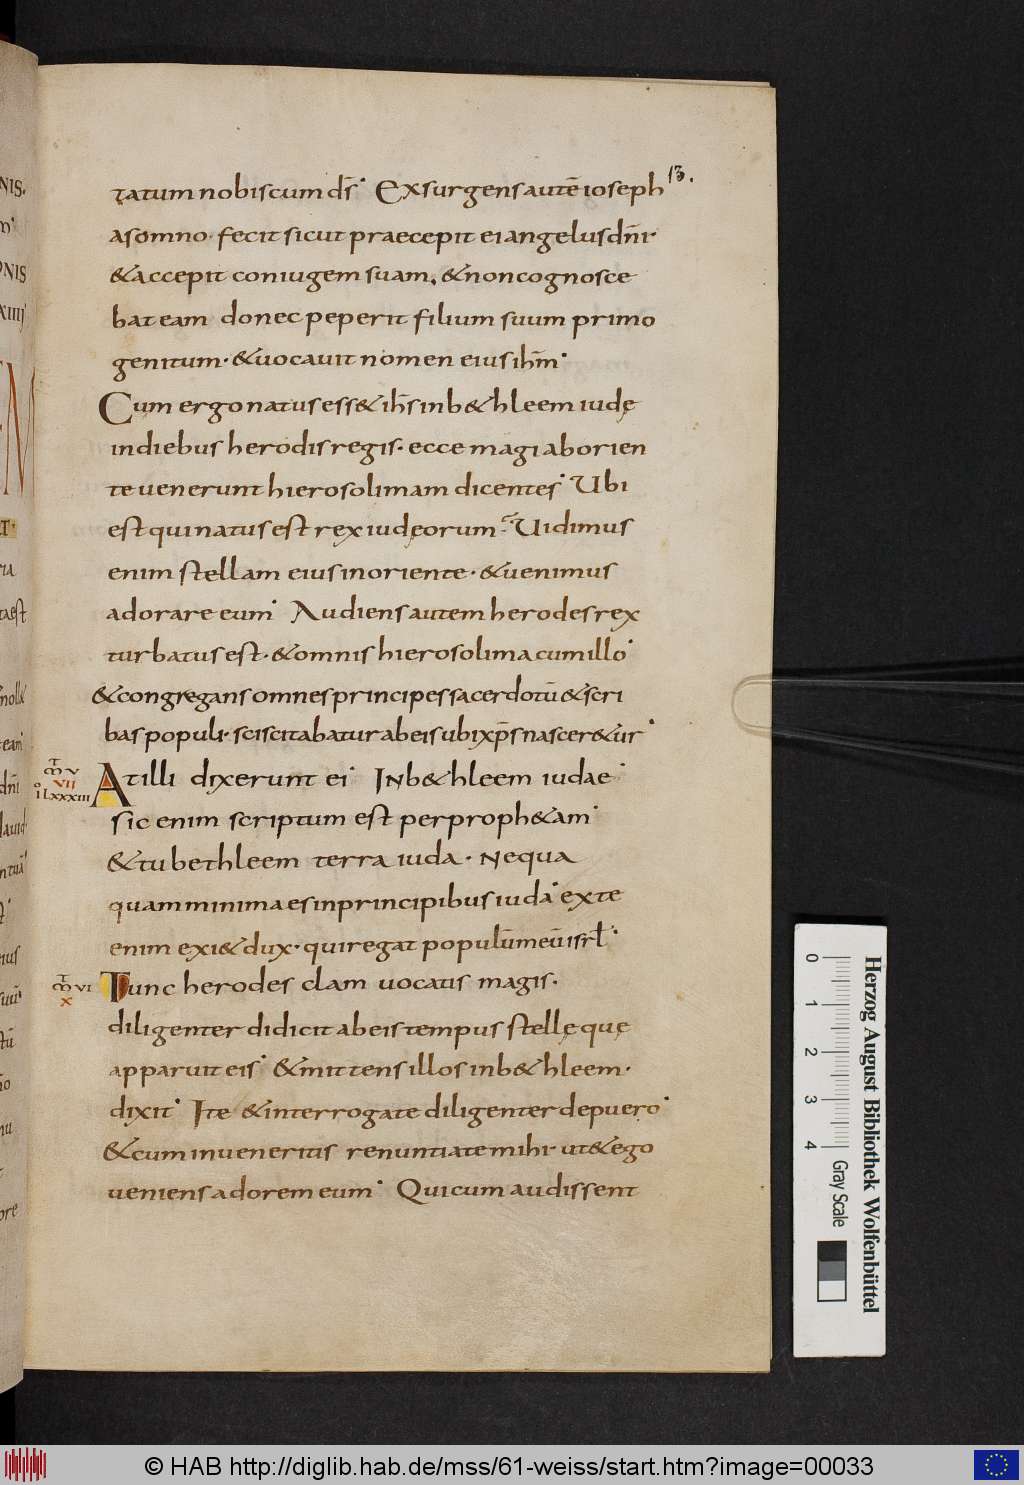 13.
tatum nobiscum ds̄. Exsurgens autē ioseph
a somno. fecit sicut praecepit ei angelus dn̄i.
& accepit coniugem suam. & non cognosce
bat eam donec peperit filium suum primo
genitum. & uocauit nomen eius ih̄m.
Cum ergo natus ess& ih̄s in b&hleem iudę
in diebus herodis regis. ecce magi ab orien
te uenerunt hierosolimam dicentes. Ubi
est qui natus est rex iudęorum? Uidimus
enim stellam eius in oriente. & uenimus
adorare eum. Audiens autem herodes rex
turbatus est. & omnis hierosolima cum illo.
& congregans omnes principes sacerdotū & scri
bas populi. sciscitabatur ab eis ubi xp̄s nascer&ur.
At illi dixerunt ei. In b&hleem iudae.
sic enim scriptum est per proph&am.
& tu bethleem terra iuda. Nequa
quam minima es in principibus iuda. ex te
enim exi& dux. qui regat populūm eū isrl̄.
Tunc herodes clam uocatis magis.
diligenter didicit ab eis tempus stellę que
apparuit eis. & mittens illos in b&hleem.
dixit. Ite & interrogate diligenter de puero.
& cum inueneritis renuntiate mihi. ut & ego
ueniens adorem eum. Qui cum audissent
mt̄ V
VII
io LXXXIII
mt̄ VI
X
Herzog August Bibliothek Wolfenbüttel
0 1 2 3 4 Gray Scale
© HAB http://diglib.hab.de/mss/61-weiss/start.htm?image=00033